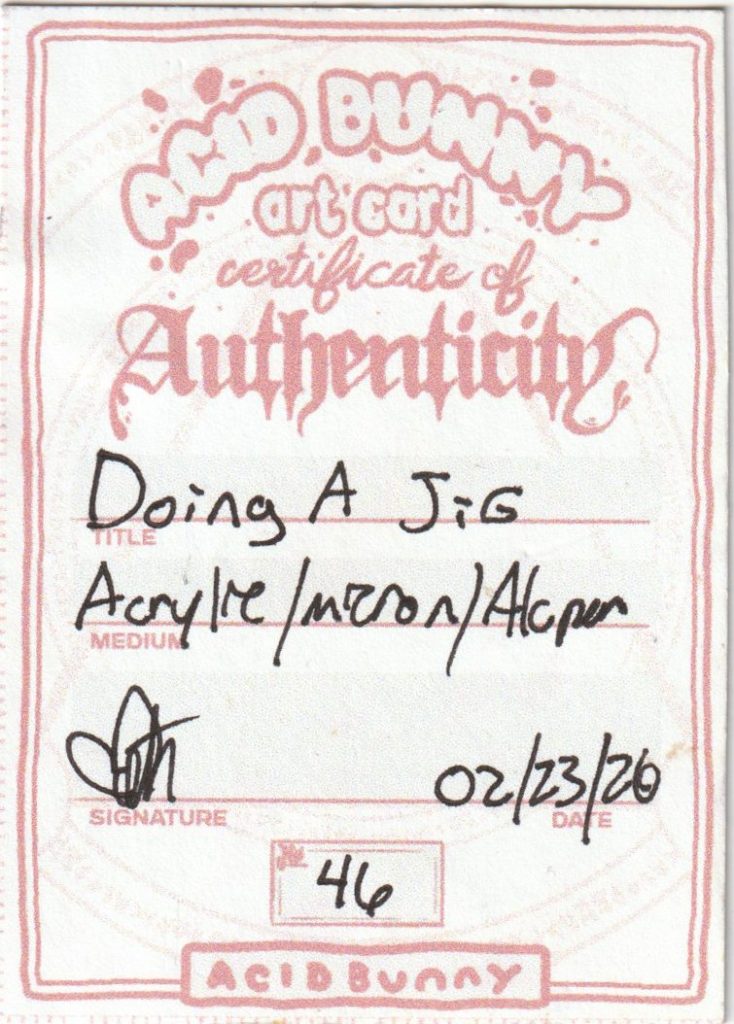 ACID BUNNY
art card
certificate of
Authenticity
Doing A JiG
TITLE
Acrylic/micron/Alcpen
MEDIUM
02/23/20
SIGNATURE DATE
46
ACID BUNNY